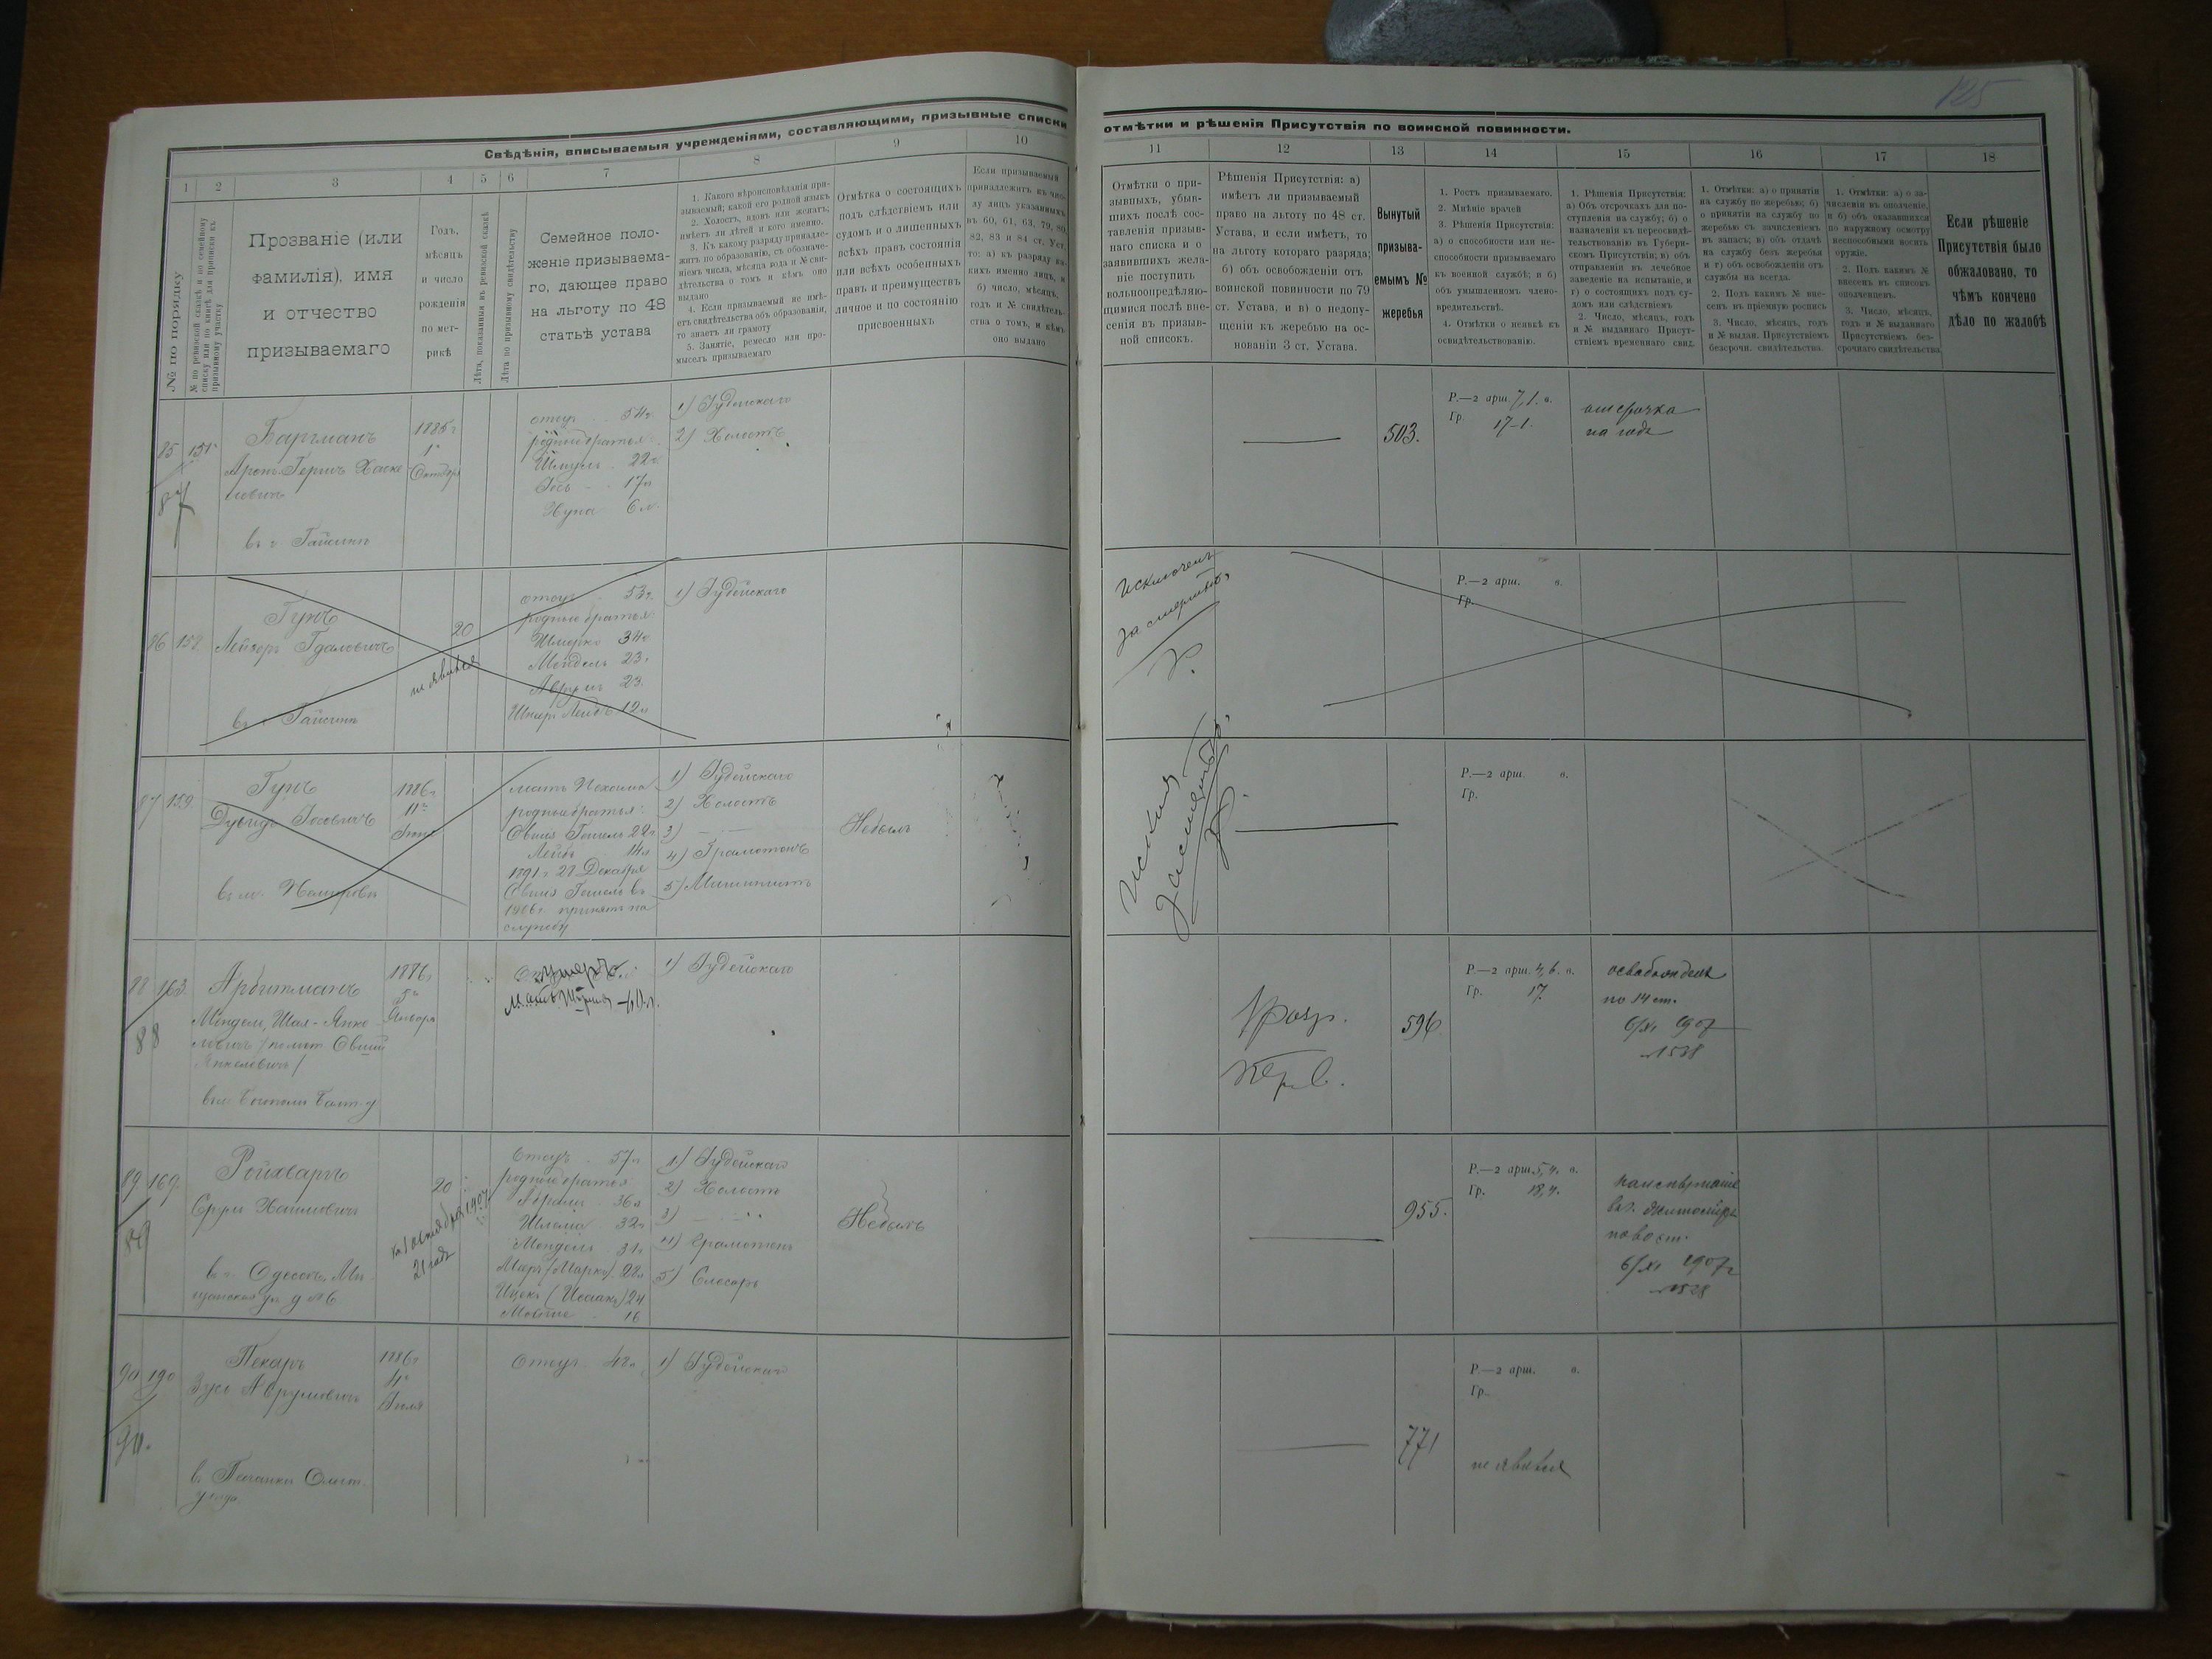 125
Свѣдѣнія, вписываемыя учрежденіями, составляющими, призывные списки
отмѣтки и рѣшенія Присутствія по воинской повинности.
1 2 3 4 5 6 7 8 9 10
11 12 13 14 15 16 17 18
№ по порядку
№ по ревизской сказкѣ и по семейному
списку или по книгѣ для приписки къ
призывному участку
Прозваніе (или
фамилія), имя
и отчество
призываемаго
Годъ,
мѣсяцъ
и число
рожденія
по мет-
рикѣ
Лѣта, показанныя въ ревизской сказкѣ
Лѣта по призывному свидѣтельству
Семейное поло-
женіе призываема-
го, дающее право
на льготу по 48
статьѣ устава
1. Какого вѣроисповѣданія при-
зываемый; какой его родной языкъ
2. Холостъ, вдовъ или женатъ;
имѣетъ ли дѣтей и кого именно.
3. Къ какому разряду принадле-
житъ по образованію, съ обозначе-
ніемъ числа, мѣсяца года и № сви-
дѣтельства о томъ и кѣмъ оно
выдано
4. Если призываемый не имѣ-
етъ свидѣтельства объ образованіи,
то знаетъ ли грамоту
5. Занятіе, ремесло или про-
мыселъ призываемаго
Отмѣтка о состоящихъ
подъ слѣдствіемъ или
судомъ и о лишенныхъ
всѣхъ правъ состоянія
или всѣхъ особенныхъ
правъ и преимуществъ
личное и по состоянію
присвоенныхъ
Если призываемый
принадлежитъ къ чис-
лу лицъ указанныхъ
въ 60, 61, 63, 79, 80,
82, 83 и 84 ст. Уст.
то: а) къ разряду ка-
кихъ именно лицъ, и
б) число, мѣсяцъ,
годъ и № свидѣтель-
ства о томъ, и кѣмъ
оно выдано
Отмѣтки о при-
зывныхъ, убыв-
шихъ послѣ сос-
тавленія призыв-
наго списка и о
заявившихъ жела-
ніе поступить
вольноопредѣляю-
щимися послѣ вне-
сенія въ призыв-
ной списокъ.
Рѣшенія Присутствія: а)
имѣетъ ли призываемый
право на льготу по 48 ст.
Устава, и если имѣетъ, то
на льготу котораго разряда;
б) объ освобожденіи отъ
воинской повинности по 79
ст. Устава, и в) о недопу-
щеніи къ жеребью на ос-
нованіи 3 ст. Устава.
Вынутый
призыва-
емымъ №
жеребья
1. Ростъ призываемаго.
2. Мнѣніе врачей
3. Рѣшенія Присутствія:
а) о способности или не-
способности призываемаго
къ военной службѣ; и б)
объ умышленномъ члено-
вредительствѣ.
4. Отмѣтки о неявкѣ къ
освидѣтельствованію.
1. Рѣшенія Присутствія:
а) Объ отсрочкахъ для по-
ступленія на службу; б) о
назначеніи къ переосвидѣ-
тельствованію въ Губерн-
скомъ Присутствіи; в) объ
отправленіи въ лечебное
заведеніе на испытаніе, и
г) о состоящихъ подъ су-
домъ или слѣдствіемъ
2. Число, мѣсяцъ, годъ
и № выданнаго Присут-
ствіемъ временнаго свид.
1. Отмѣтки: а) о принятіи
на службу по жеребью; б)
о принятіи на службу по
жеребью съ зачисленіемъ
въ запасъ; в) объ отдачѣ
на службу безъ жеребья
и г) объ освобожденіи отъ
службы на всегда.
2. Подъ какимъ № вне-
сенъ въ пріемную роспись
3. Число, мѣсяцъ, годъ
и № выдан. Присутствіемъ
безсрочн. свидѣтельства.
1. Отмѣтки: а) о за-
численіи въ ополченіе,
и б) объ оказавшихся
по наружному осмотру
неспособными носить
оружіе.
2. Подъ какимъ №
внесенъ въ списокъ
ополченцевъ.
3. Число, мѣсяцъ,
годъ и № выданнаго
Присутствіемъ без-
срочнаго свидѣтельства
Если рѣшеніе
Присутствія было
обжаловано, то
чѣмъ кончено
дѣло по жалобѣ
85
87
Баргманъ
Аронъ-Гершъ Хаске-
левичъ
въ г. Гайсинѣ
1
Октября
отецъ 54г.
родные братья:
Шмуль 22г.
17л
6л.
1) Іудейскаго
2) Холостъ
503.
Р.—2 арш. 7,1. в.
Гр. 17-1.
отсрочка
на годъ
86 158.
Гунъ
Лейзеръ Гдалевичъ
въ г. Гайсинѣ
20
не явился
отецъ 53г.
родные братья:
Шмерко 34г.
Мендель 23.
12л
1) Іудейскаго
Исключенъ
за смертью,
Р.—2 арш. в.
Гр.
87 159.
Гунъ
Дувидъ Іосевичъ
въ м. Немировѣ
1886г
11го
мать Нехама
родные братья:
Овшія Гошель 22г.
14л
1891г 27 Декабря
Овшія Гошель въ
1906г. принятъ на
службу
1) Іудейскаго
2) Холостъ
3) — —
4) Грамотенъ
5) Машинистъ
Небылъ
за смертью,
Р.—2 арш. в.
Гр.
88 163.
88
Арбитманъ
Мендель, Шая-Янко-
левичъ (по мет. Овшій
Янкелевичъ)
1886г
5го
Января
умеръ
1) Іудейскаго
1 разр.
596
Р.—2 арш. 4,6. в.
Гр. 17.
освобожденъ
по 14 ст.
6/XI 1907
№ 1528
89 169.
89
Ройхваргъ
Срул Хаимовичъ
въ г. Одессѣ, Мѣ-
щанская ул д №6
20
къ 1 октября 1907г
21 годъ
Отецъ 57л
родные братья:
36л
Шлема 32л
Мендель 31л
Маръ (Марко) 28л
Ицекъ (Исаакъ) 24
16
1) Іудейскаго
2) Холостъ
3) — —
4) Грамотенъ
5) Слесарь
Небылъ
955.
Р.—2 арш. 5,4. в.
Гр. 18,4.
на испытаніе
въ г. Житоміръ
6/XI 1907г
№ 1528
90 190
90.
Пекарь
Зусь Аврумовичъ
1886г
4го
отецъ 42л.
1) Іудейскаго
771
Р.—2 арш. в.
Гр.
не явился